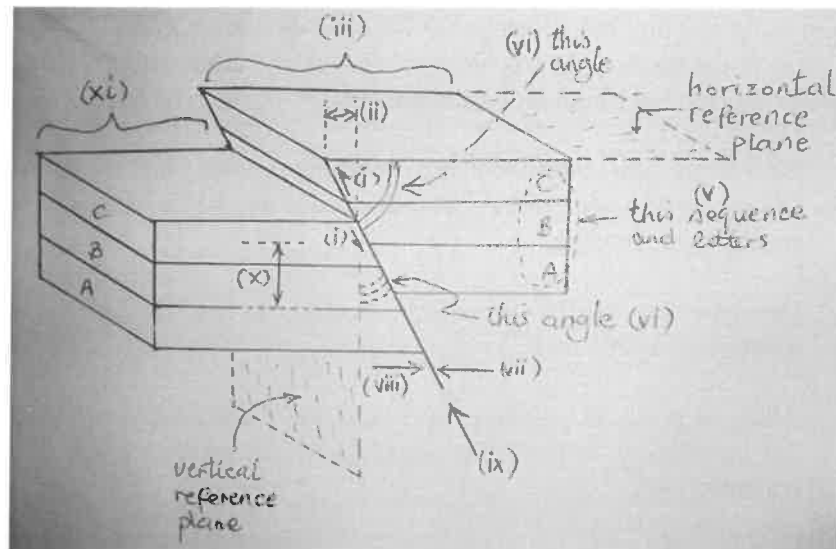 (iii)
(vi) this
angle
(xi)
(ii)
horizontal
reference
plane
(i)
C
(v)
this sequence
and letters
B
A
C
B
A
(i)
(x)
this angle (vi)
(viii)
(vii)
(ix)
vertical
reference
plane